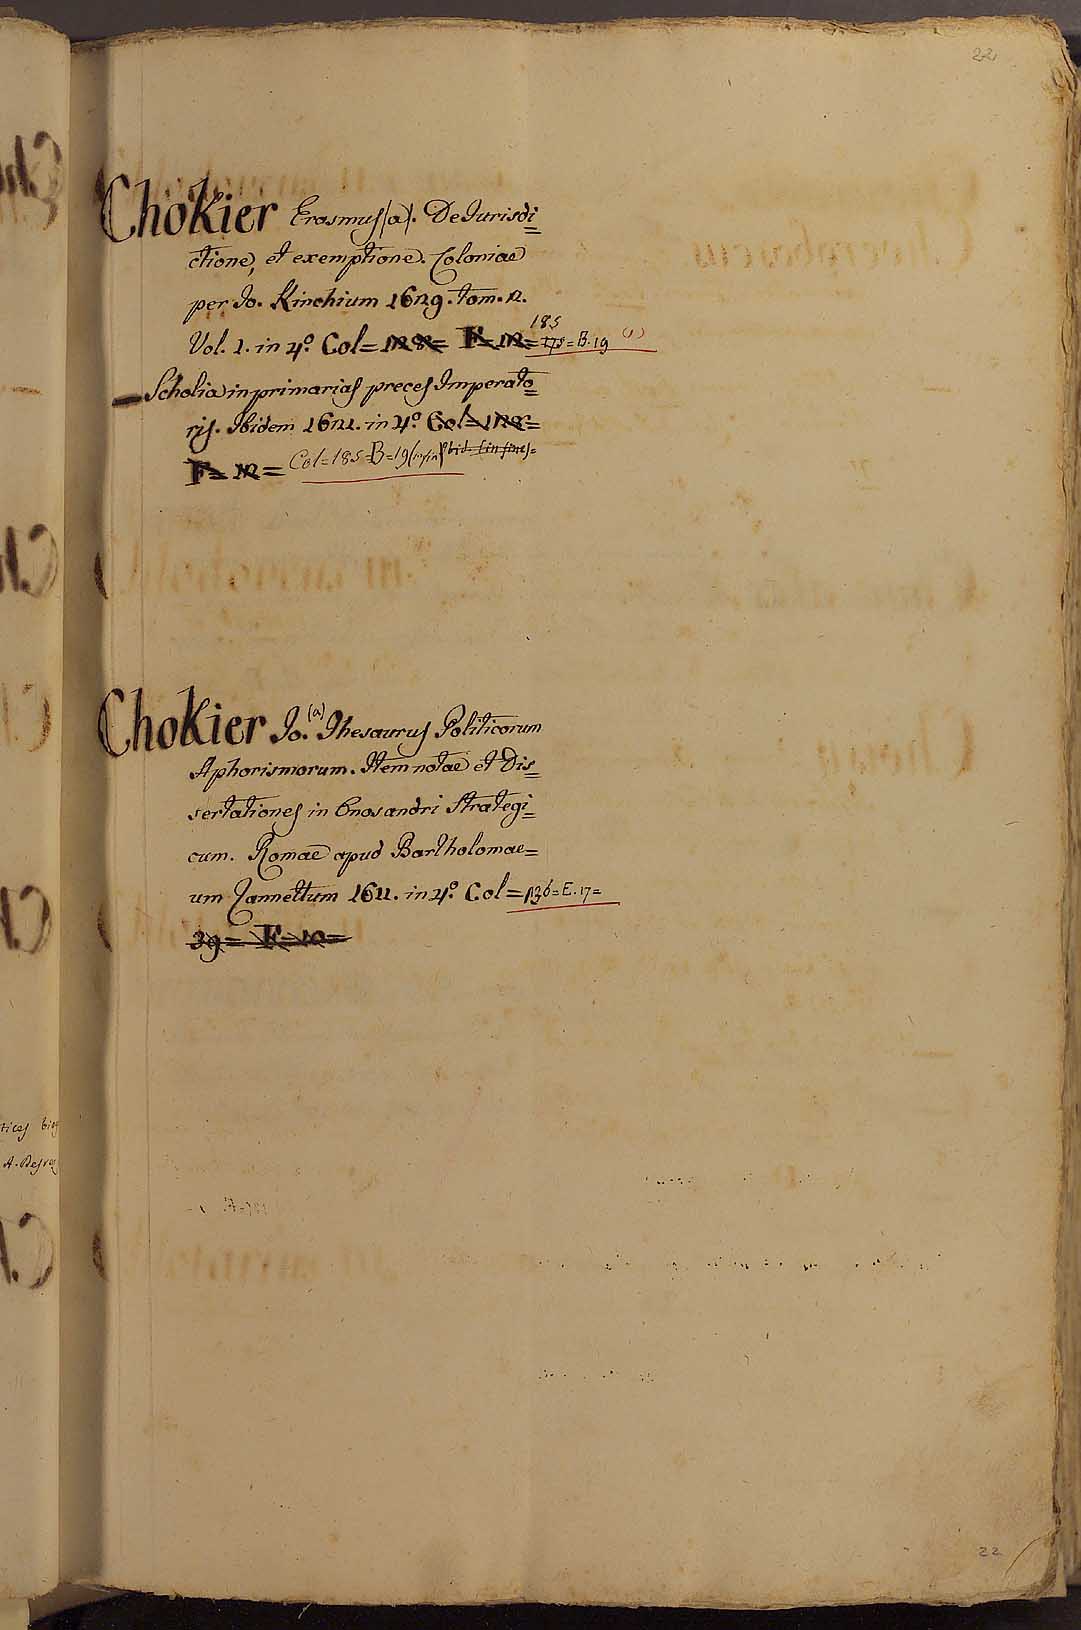 22
Chokier Erasmus (a). De Iurisdi=
ctione, et exemptione. Coloniae
per Io. Kinchium 1629. tom. 2.
185
Vol. 1. in 4.° Col= 128= F= 12= 175= B. 19 (1)
— Scholia in primarias preces Imperato=
ris. Ibidem 1621. in 4.° Col= 128=
F= 12= Col=185=B=19 (in fine)
Chokier Io. (a) Thesaurus Politicorum
Aphorismorum. Item notae et Dis=
sertationes in Onosandri Strategi=
cum. Romae apud Bartholomae=
um Zannettum 1611. in 4.° Col= 136= E. 17=
39= F= 12=
22